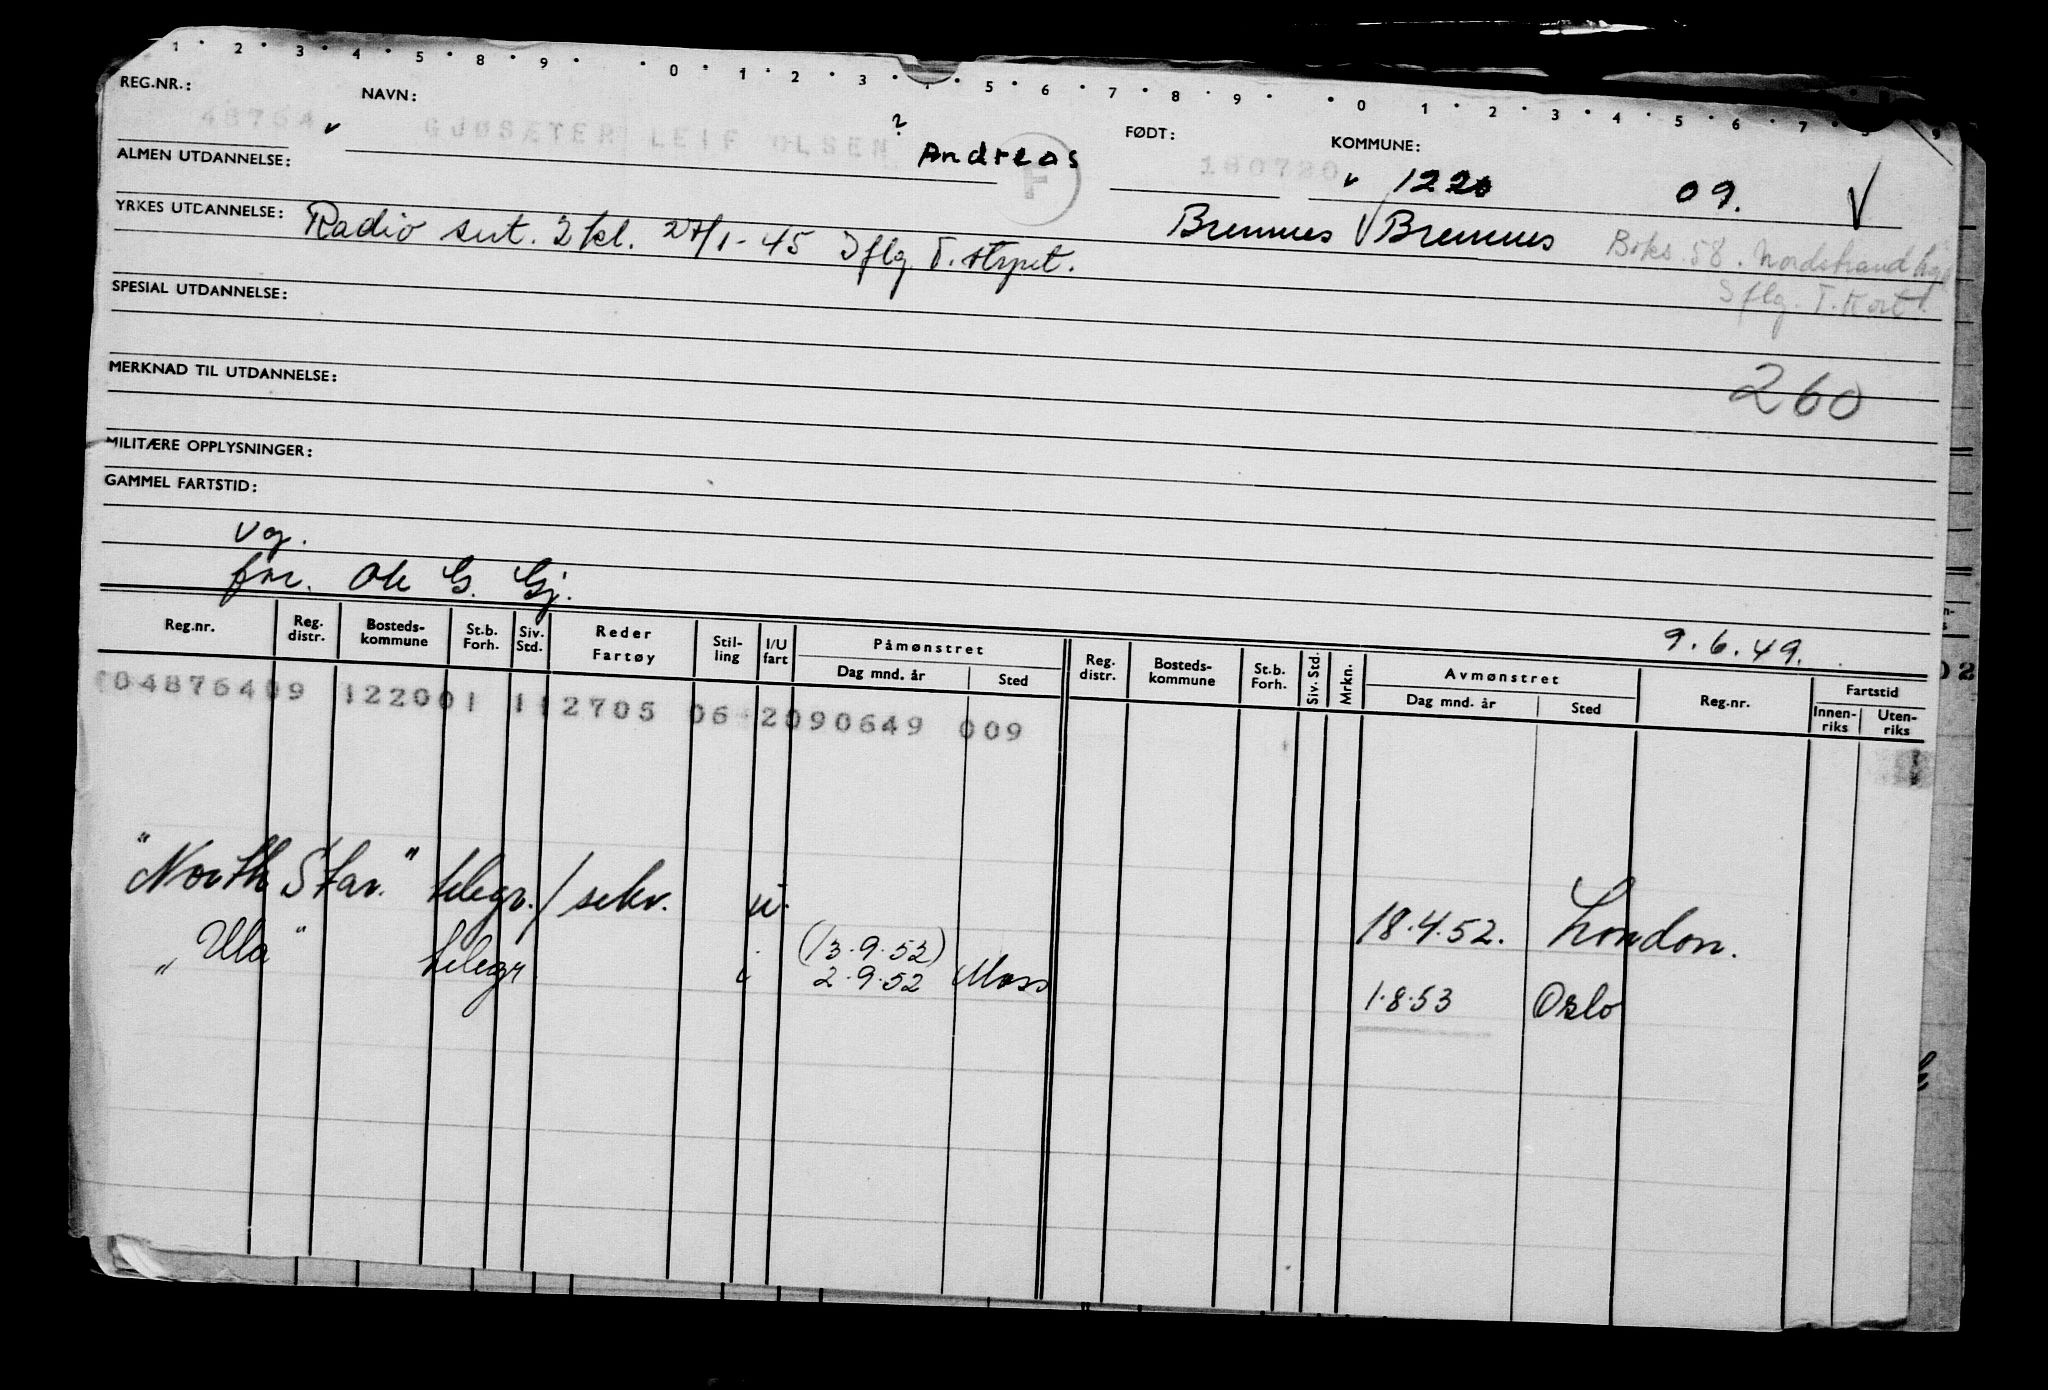 1 · 2 · 3 · 4 · 5 · 8 · 9 · · 0 · 1 · 2 · 3 · 4 · 5 · 6 · 7 · 8 · 9 · · 0 1 · 2 · 3 · 4 · 5 · 6 · 7 · 8 · 9
REG.NR.: NAVN: FØDT: KOMMUNE:
48764 v GJØSÆTER LEIF OLSEN ? Andreas F 180720 v 1220 09. V
ALMEN UTDANNELSE:
Bremnes V Bremnes Boks. 58. Nordstrand
YRKES UTDANNELSE: Radio sert. 2 kl. 27/1-45 Iflg. T.
Iflg. T. Kort.
SPESIAL UTDANNELSE:
MERKNAD TIL UTDANNELSE:
260
MILITÆRE OPPLYSNINGER:
GAMMEL FARTSTID:
vg.
far. Ole G. Gj.
9.6.49.
Reg.nr. Reg. distr. Bosteds-kommune St.b. Forh. Siv. Std. Reder Fartøy Stil-ling I/U fart Påmønstret Dag mnd. år Sted Reg. distr. Bosteds-kommune St.b. Forh. Siv. Std. Mrkn. Avmønstret Dag mnd. år Sted Reg.nr. Fartstid Innen-riks Uten-riks
04876409 122001 112705 06 2090649 009
"North Star." telegr./sekr. u. 18.4.52. London.
"Ula" telegr i (13.9.52)
2.9.52 Moss 1.8.53 Oslo
02